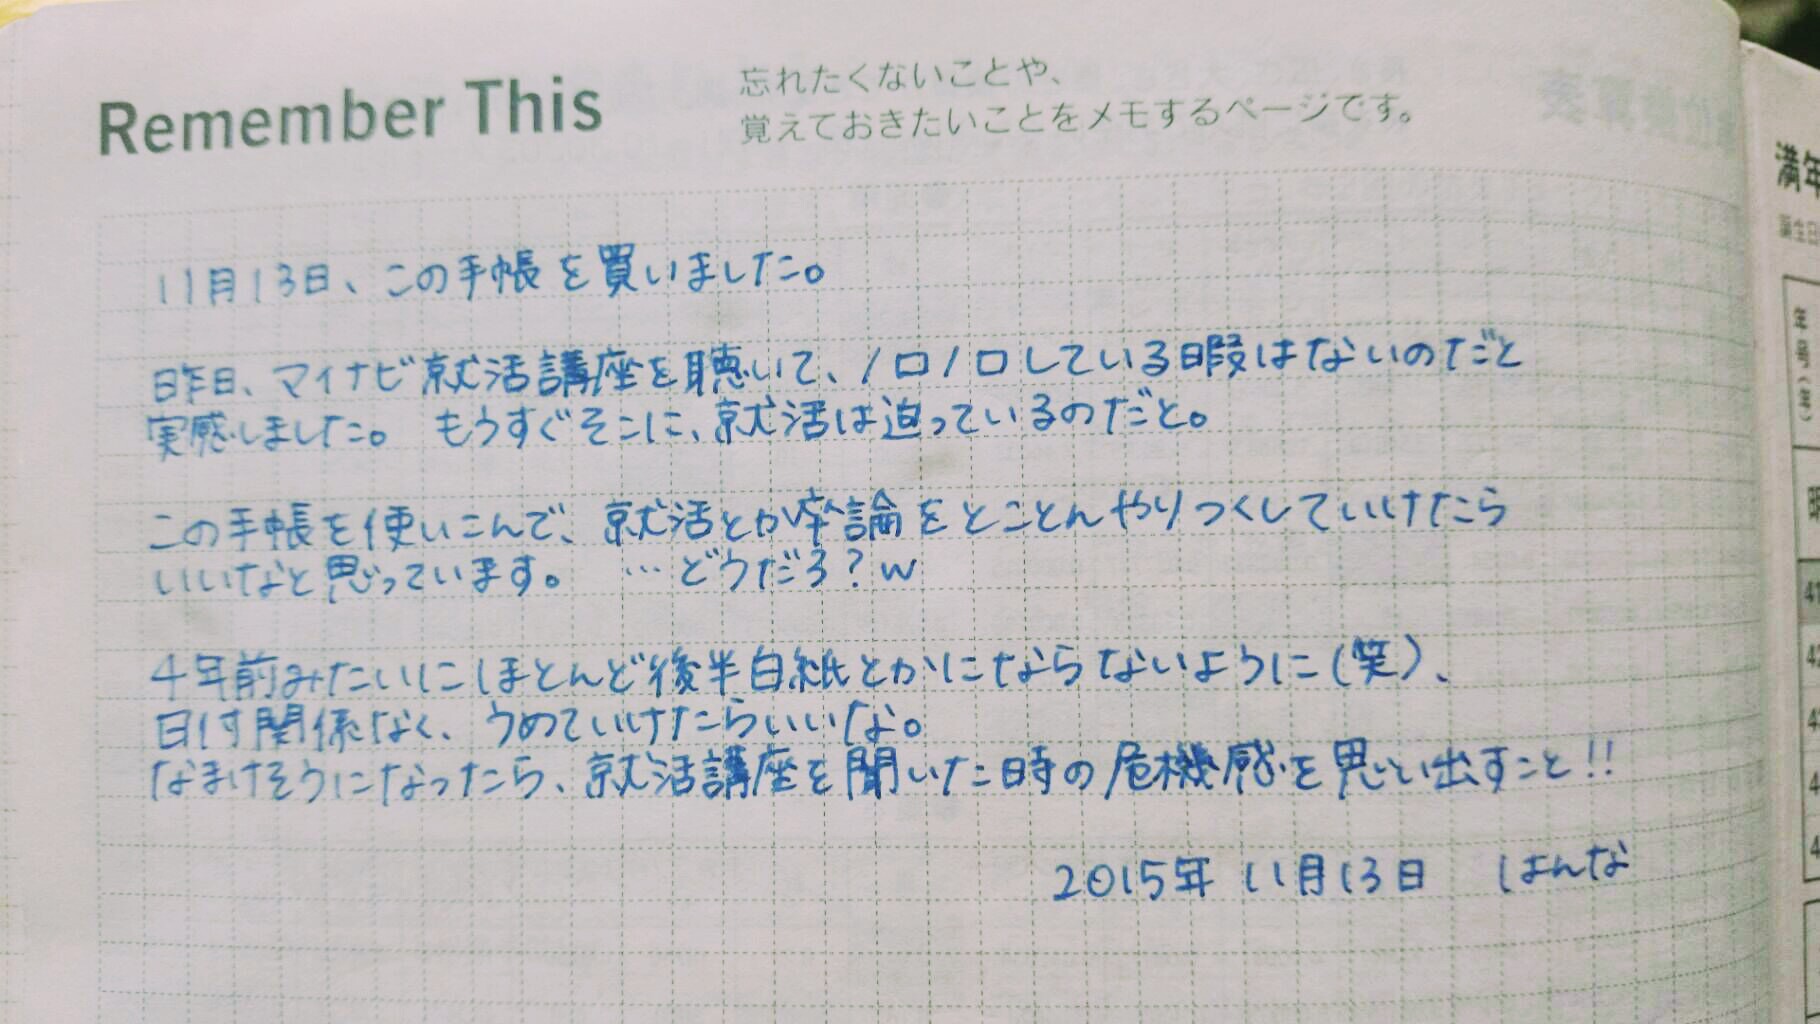 Remember This
忘れたくないことや、
覚えておきたいことをメモするページです。
11月13日、この手帳を買いました。
昨日、マイナビ就活講座を聴いて、ノロノロしている暇はないのだと
実感しました。 もうすぐそこに、就活は迫っているのだと。
この手帳を使いこんで、就活とか卒論をとことんやりつくしていけたら
いいなと思っています。 …どうだろ?w
4年前みたいにほとんど後半白紙とかにならないように(笑)、
日付関係なく、うめていけたらいいな。
なまけそうになったら、就活講座を聞いた時の危機感を思い出すこと!!
2015年 11月13日 はんな
満年
誕生日
年号(年)